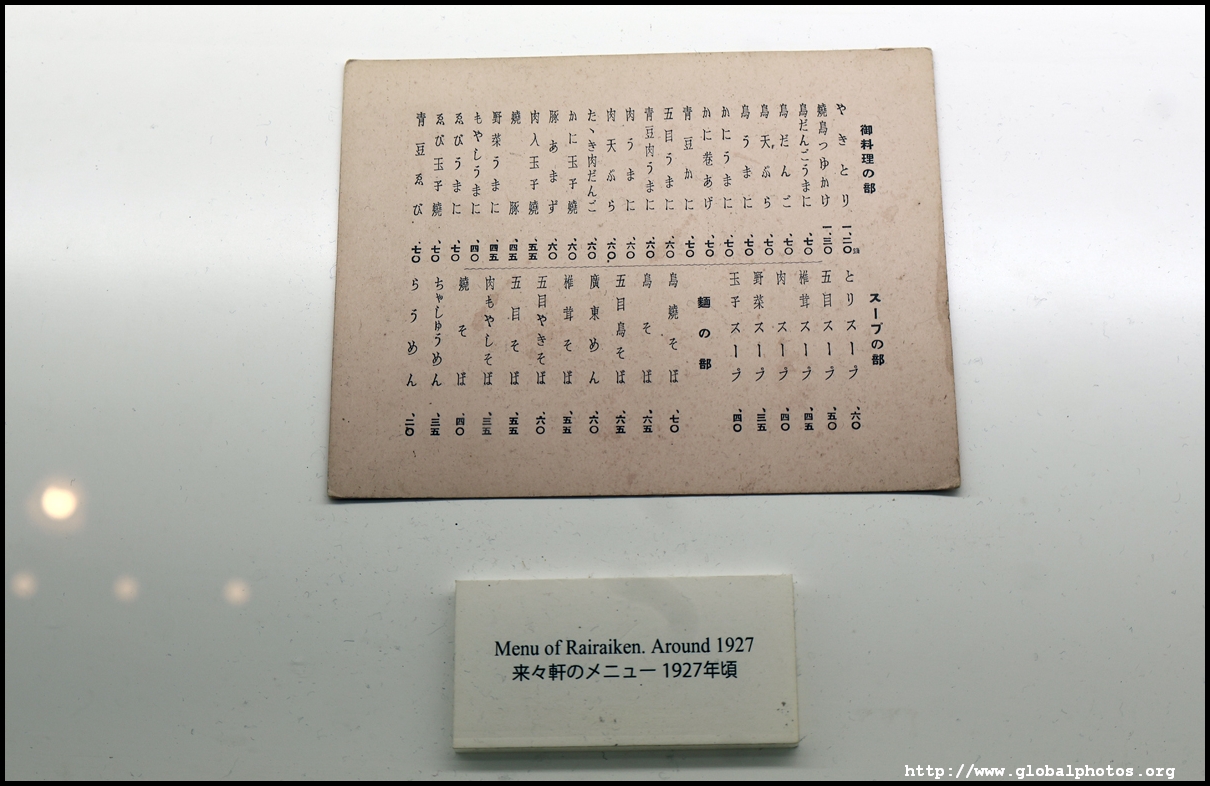 御料理の部
やきとり 一、二〇
燒鳥つゆかけ 一、三〇
鳥だんごうまに 、七〇
鳥だんご 、七〇
鳥天ぷら 、七〇
鳥うまに 、七〇
かにうまに 、七〇
かに巻あげ 、七〇
青豆かに 、七〇
五目うまに 、六〇
青豆肉うまに 、六〇
肉うまに 、六〇
肉天ぷら 、六〇
たゝき肉だんご 、六〇
かに玉子燒 、六〇
豚あまず 、六〇
肉入玉子燒 、五五
燒豚 、四五
野菜うまに 、四五
もやしうまに 、四〇
ゑびうまに 、七〇
ゑび玉子燒 、七〇
青豆ゑび 、七〇
スープの部
とりスープ 、六〇
五目スープ 、五〇
椎茸スープ 、四五
肉スープ 、四〇
野菜スープ 、三五
玉子スープ 、四〇
麺の部
鳥燒そば 、七〇
鳥そば 、六五
五目鳥そば 、六五
廣東めん 、六〇
椎茸そば 、五五
五目やきそば 、六〇
五目そば 、五五
肉もやしそば 、三五
燒そば 、四〇
ちゃしゅうめん 、三五
らうめん 、二〇
Menu of Rairaiken. Around 1927
来々軒のメニュー 1927年頃
http://www.globalphotos.org